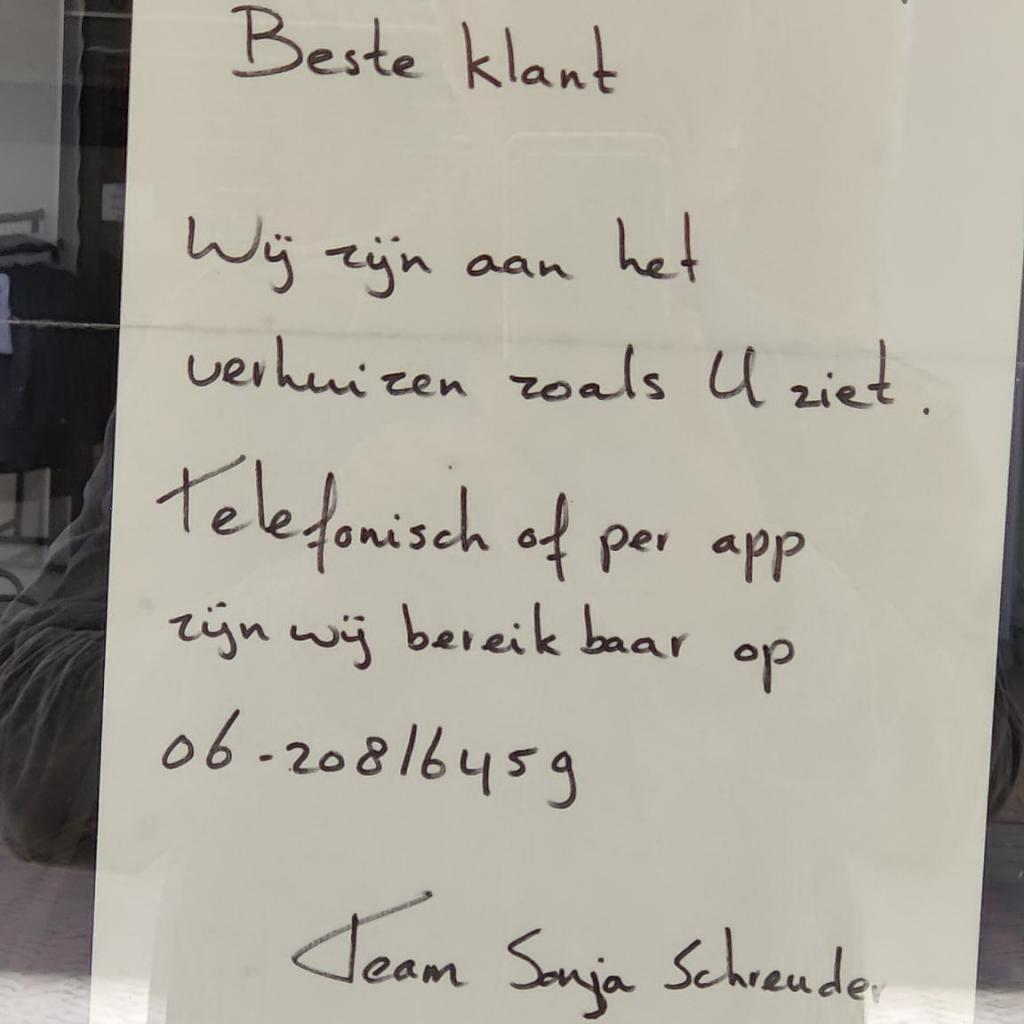 Beste klant
Wij zijn aan het
verhuizen zoals U ziet.
Telefonisch of per app
zijn wij bereikbaar op
06-20816459
Team Sonja Schreuder